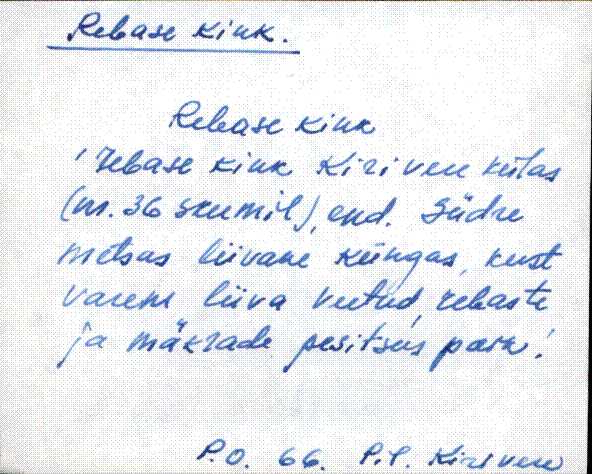 Rebase kink.
Rebase kink
'rebase kink Kirivere külas
(nr. 36 skeemil), end. Südre
metsas liivane küngas, kust
varem liiva veetud, rebaste
ja mäkrade pesitsus paik.'
P.O. 66. P.-P. Kirivere